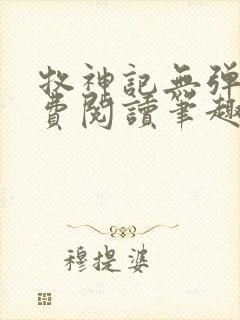 牧神記無彈
費閱讀筆趣
穆提婆